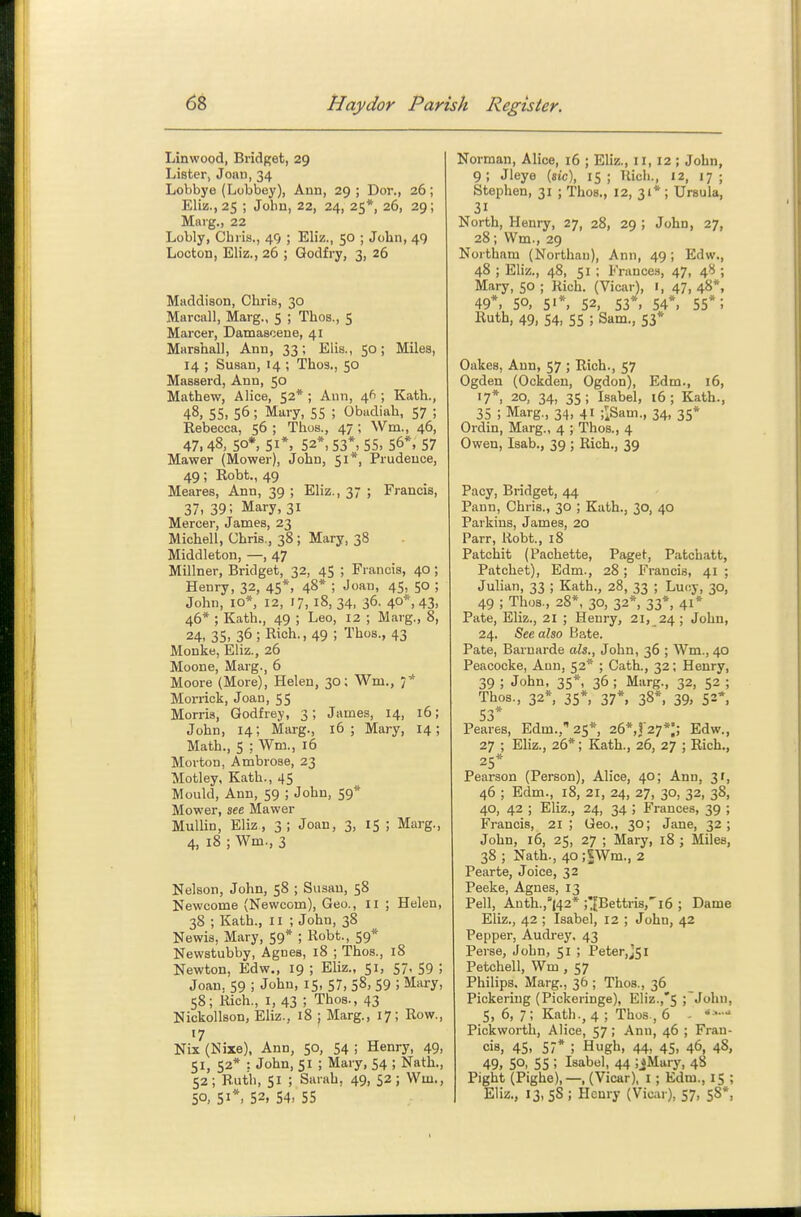 68 Haydor Parish Register.
Linwood, Bridget, 29
Lister, Joan, 34
Lobbye (Lobbey), Ann, 29 ; Dor., 26 ;
Eliz., 25 ; John, 22, 24, 25*, 26, 29 ;
Marg., 22
Lobly, Chris., 49 ; Eliz., 50 ; John, 49
Locton, Eliz., 26 ; Godfry, 3, 26
Maddison, Chris, 30
Marcall, Marg., 5 ; Thos., 5
Marcer, Damascene, 41
Marshall, Ann, 33 ; Elis., 50 ; Miles,
14 ; Susan, 14 ; Thos., 50
Masserd, Ann, 50
Mathew, Alice, 52* ; Ann, 46 ; Kath.,
48, 55, 56 ; Mary, 55 ; Obadiah, 57 ;
Rebecca, 56 ; Thos., 47 ; Wm., 46,
47, 48, 50*, 51*, 52*, 53*, 55, 56*, 57
Mawer (Mower), John, 51*, Prudence,
49 ; Robt., 49
Meares, Ann, 39 ; Eliz., 37 ; Francis,
37, 39 ; Mary, 31
Mercer, James, 23
Michell, Chris., 38 ; Mary, 38
Middleton, —, 47
Millner, Bridget, 32, 45 ; Francis, 40 ;
Henry, 32, 45*, 48* ; Joan, 45, 50 ;
John, 10*, 12, 17, 18, 34, 36, 40*, 43,
46* ; Kath., 49 ; Leo, 12 ; Marg., 8,
24, 35, 36 ; Rich., 49 ; Thos., 43
Monke, Eliz., 26
Moone, Marg., 6
Moore (More), Helen, 30 ; Wm., 7*
Morrick, Joan, 55
Morris, Godfrey, 3 ; James, 14, 16 ;
John, 14 ; Marg., 16 ; Mary, 14 ;
Math., 5 ; Wm., 16
Morton, Ambrose, 23
Motley, Kath., 45
Mould, Ann, 59 ; John, 59*
Mower, see Mawer
Mullin, Eliz., 3 ; Joan, 3, 15 ; Marg.,
4, 18 ; Wm., 3
Nelson, John, 58 ; Susan, 58
Newcome (Newcom), Geo., 11 ; Helen,
38 ; Kath., 11 ; John, 38
Newis, Mary, 59* ; Robt., 59*
Newstubby, Agnes, 18 ; Thos., 18
Newton, Edw., 19 ; Eliz., 51, 57, 59 ;
Joan, 59 ; John, 15, 57, 58, 59 ; Mary,
58 ; Rich., 1, 43 ; Thos., 43
Nickollson, Eliz., 18 ; Marg., 17 ; Row.,
17
Nix (Nixe), Ann, 50, 54 ; Henry, 49,
51, 52* ; John, 51 ; Mary, 54 ; Nath.,
52 ; Ruth, 51 ; Sarah, 49, 52 ; Wm.,
50, 51*, 52, 54, 55
Norman, Alice, 16 ; Eliz., 11, 12 ; John,
9 ; Jleye (sic), 15 ; Rich., 12, 17 ;
Stephen, 31 ; Thos., 12, 31* ; Ursula,
31
North, Henry, 27, 28, 29 ; John, 27,
28 ; Wm., 29
Northam (Northan), Ann, 49 ; Edw.,
48 ; Eliz., 48, 51 ; Frances, 47, 48 ;
Mary, 50 ; Rich. (Vicar), 1, 47, 48*,
49*, 50, 51*, 52, 53*, 54*, 55* ;
Ruth, 49, 54, 55 ; Sam., 53*
Oakes, Ann, 57 ; Rich., 57
Ogden (Ockden, Ogdon), Edm., 16,
17*, 20, 34, 35 ; Isabel, 16 ; Kath.,
35 ; Marg., 34, 41 ; Sam., 34, 35*
Ordin, Marg., 4 ; Thos., 4
Owen, Isab., 39 ; Rich., 39
Pacy, Bridget, 44
Pann, Chris., 30 ; Kath., 30, 40
Parkins, James, 20
Parr, Robt., 18
Patchit (Pachette, Paget, Patchatt,
Patchet), Edm., 28 ; Francis, 41 ;
Julian, 33 ; Kath., 28, 33 ; Lucy, 30,
49 ; Thos., 28*, 30, 32*, 33*, 41*
Pate, Eliz., 21 ; Henry, 21, 24 ; John,
24. See also Bate.
Pate, Barnarde als., John, 36 ; Wm., 40
Peacocke, Ann, 52* ; Cath., 32 ; Henry,
39 ; John, 35*, 36 ; Marg., 32, 52 ;
Thos., 32*, 35*, 37*, 38*, 39, 52*,
53*
Peares, Edm., 25*, 26*, 27* ; Edw.,
27 ; Eliz., 26* ; Kath., 26, 27 ; Rich.,
25*
Pearson (Person), Alice, 40 ; Ann, 31,
46 ; Edm., 18, 21, 24, 27, 30, 32, 38,
40, 42 ; Eliz., 24, 34 ; Frances, 39 ;
Francis, 21 ; Geo., 30 ; Jane, 32 ;
John, 16, 25, 27 ; Mary, 18 ; Miles,
38 ; Nath., 40 ; Wm., 2
Pearte, Joice, 32
Peeke, Agnes, 13
Pell, Anth., 42* ; Bettris, 16 ; Dame
Eliz., 42 ; Isabel, 12 ; John, 42
Pepper, Audrey, 43
Perse, John, 51 ; Peter, 51
Petchell, Wm, 57
Philips, Marg., 36 ; Thos., 36
Pickering (Pickeringe), Eliz., 5 ; John,
5, 6, 7 ; Kath., 4 ; Thos., 6
Pickworth, Alice, 57 ; Ann, 46 ; Fran-
cis, 45, 57* ; Hugh, 44, 45, 46, 48,
49, 50, 55 ; Isabel, 44 ; Mary, 48
Pight (Pighe), —, (Vicar), 1 ; Edm., 15 ;
Eliz., 13, 58 ; Henry (Vicar), 57, 58*,